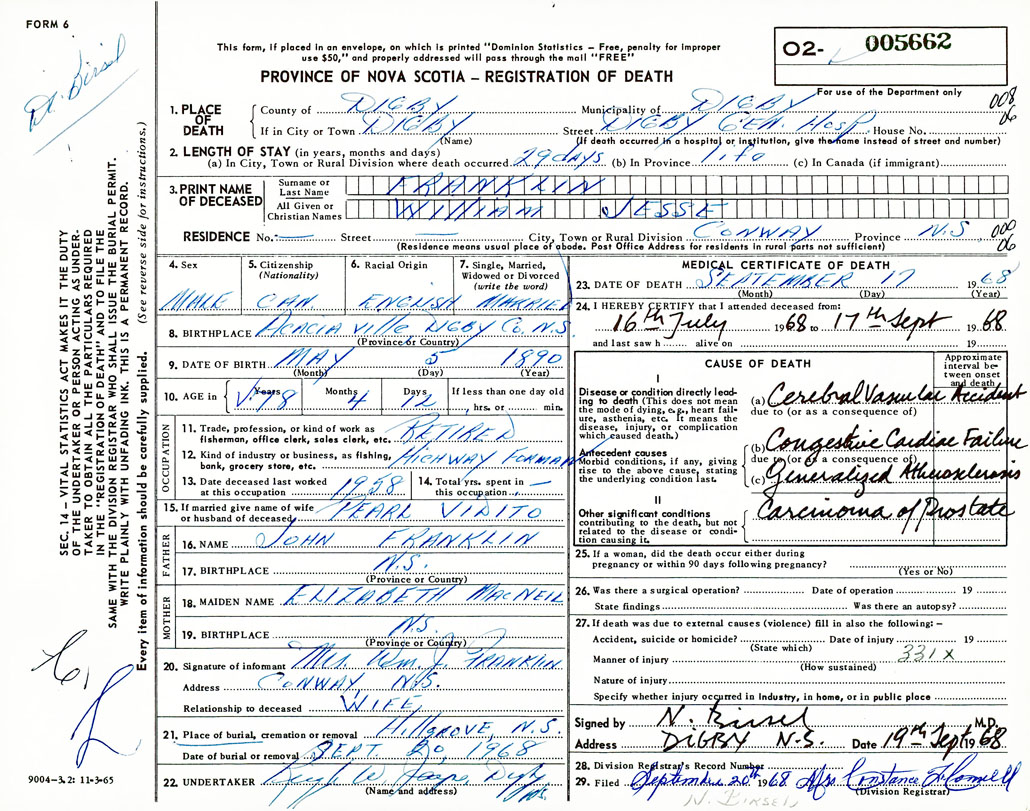 FORM 6
Dr. Birsel
This form, if placed in an envelope, on which is printed "Dominion Statistics – Free, penalty for improper
use $50," and properly addressed will pass through the mail "FREE"
PROVINCE OF NOVA SCOTIA – REGISTRATION OF DEATH
O2- 005662
For use of the Department only
008
06
1. PLACE OF DEATH
County of DIGBY Municipality of DIGBY
If in City or Town DIGBY Street DIGBY GEN. Hosp House No.
(Name) (If death occurred in a hospital or institution, give the name instead of street and number)
2. LENGTH OF STAY (in years, months and days)
(a) In City, Town or Rural Division where death occurred 29 days (b) In Province life (c) In Canada (if immigrant)
3. PRINT NAME OF DECEASED
Surname or Last Name FRANKLIN
All Given or Christian Names William JESSE
RESIDENCE No. — Street — City, Town or Rural Division CONWAY Province N.S.
(Residence means usual place of abode. Post Office Address for residents in rural parts not sufficient)
000
06
4. Sex MALE
5. Citizenship (Nationality) CAN
6. Racial Origin ENGLISH
7. Single, Married, Widowed or Divorced (write the word) MARRIED
8. BIRTHPLACE Acacia ville DIGBY Co. N.S.
(Province or Country)
9. DATE OF BIRTH MAY 5 1890
(Month) (Day) (Year)
10. AGE in Years 78 Months 4 Days 12 If less than one day old
hrs. or min.
OCCUPATION
11. Trade, profession, or kind of work as
fisherman, office clerk, sales clerk, etc. RETIRED
12. Kind of industry or business, as fishing,
bank, grocery store, etc. HIGHWAY FORMAN
13. Date deceased last worked
at this occupation 1958
14. Total yrs. spent in
this occupation —
15. If married give name of wife
or husband of deceased PEARL VIDITO
FATHER
16. NAME JOHN FRANKLIN
17. BIRTHPLACE N.S.
(Province or Country)
MOTHER
18. MAIDEN NAME ELIZABETH MacNEIL
19. BIRTHPLACE N.S.
(Province or Country)
20. Signature of informant Mrs. Wm. J. FRANKLIN
Address CONWAY, N.S.
Relationship to deceased WIFE
21. Place of burial, cremation or removal Hillgrove, N.S.
Date of burial or removal SEPT. 20, 1968
22. UNDERTAKER
(Name and address)
MEDICAL CERTIFICATE OF DEATH
23. DATE OF DEATH SEPTEMBER 17 1968
(Month) (Day) (Year)
24. I HEREBY CERTIFY that I attended deceased from:
16th July 1968 to 17th Sept 1968
and last saw h alive on 19
CAUSE OF DEATH
Approximate interval between onset and death
I
Disease or condition directly leading to death (This does not mean the mode of dying, e.g., heart failure, asthenia, etc. It means the disease, injury, or complication which caused death.)
(a) Cerebral Vascular Accident
due to (or as a consequence of)
Antecedent causes
Morbid conditions, if any, giving rise to the above cause, stating the underlying condition last.
(b) Congestive Cardiac Failure
due to (or as a consequence of)
(c) Generalized Atheosclerosis
II
Other significant conditions
contributing to the death, but not related to the disease or condition causing it.
Carcinoma of Prostate
25. If a woman, did the death occur either during
pregnancy or within 90 days following pregnancy?
(Yes or No)
26. Was there a surgical operation? Date of operation 19
State findings Was there an autopsy?
27. If death was due to external causes (violence) fill in also the following: –
Accident, suicide or homicide? Date of injury 19
(State which)
Manner of injury 331 X
(How sustained)
Nature of injury
Specify whether injury occurred in Industry, in home, or in public place
Signed by N. Birsel M.D.
Address DIGBY N.S. Date 19th Sept 1968
28. Division Registrar's Record Number
29. Filed September 20th 1968 Mrs. Constance
(Division Registrar)
N. BIRSEL
SEC. 14 – VITAL STATISTICS ACT MAKES IT THE DUTY
OF THE UNDERTAKER OR PERSON ACTING AS UNDER-
TAKER TO OBTAIN ALL THE PARTICULARS REQUIRED
IN THE "REGISTRATION OF DEATH" AND TO FILE THE
SAME WITH THE DIVISION REGISTRAR WHO SHALL ISSUE THE BURIAL PERMIT.
WRITE PLAINLY WITH UNFADING INK. THIS IS A PERMANENT RECORD.
Every item of information should be carefully supplied. (See reverse side for instructions.)
9004-3.2: 11-3-65